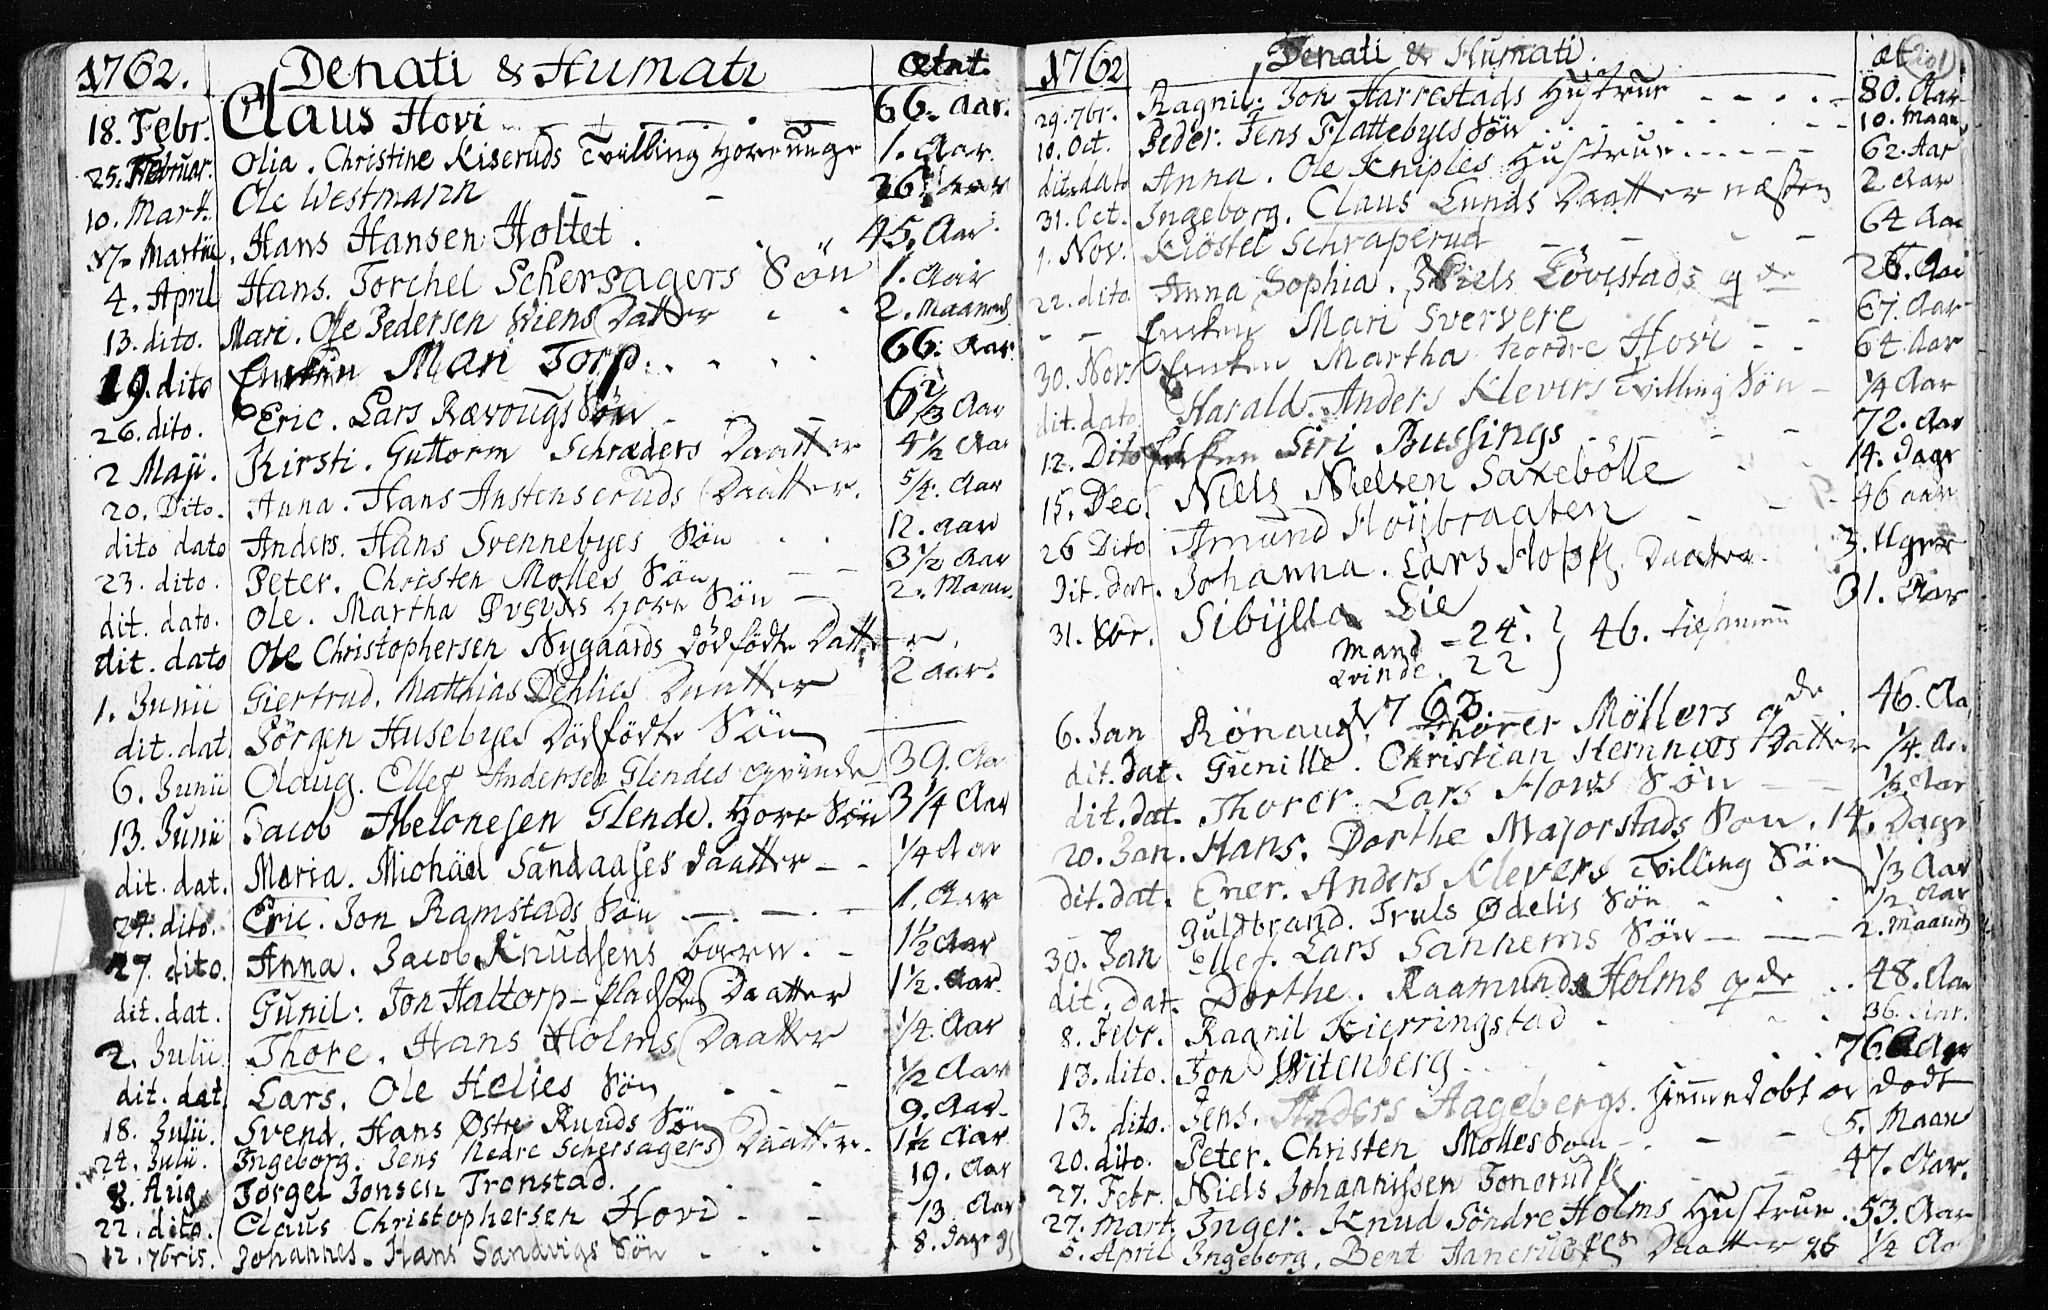 1762. Denati & Humati ætat.
18. Febr. Claus Hovi 66. Aar.
25. Februar. Olia. Christine Kiseruds Tvilling Hore unge 1. Aar.
10. Mart. Ole Westmann 36. Aar
17. Martii. Hans Hansen Holtet. 45. Aar.
4. April Hans. Torchel Schersagers Søn 1. Aar
13. dito. Mari. Ole Pedersen Wiens Datter 2. Maaneds
19. dito Enken Mari Torp. 66. Aar.
26. dito. Eric. Lars Rævougs Søn 6 1/3 Aar
2 Maji. Kirsti. Guttorm Schræders Daatter 4 1/2 Aar
20. Dito. Anna. Hans Anstenseruds Daatter. 5/4. Aar
dito dato Anders. Hans Svennebyes Søn 12. Aar
23. dito. Peter. Christen Molles Søn 3 1/2 Aar
dit. dato. Ole. Martha Hore Søn 2. Maan.
dit. dato Ole Christophersen Nygaards dødfødte Datter.
1. Junii Giertrud. Matthias Dehlies Daatter 2 Aar.
dit. dat. Jørgen Husebyes Dødfødte Søn
6. Junii Olaug. Ellef Andersen Glendes qvinde 39. Aa
13. Junii Jacob Glende. Hore Søn 3 1/4 Aar
dit. dat. Maria. Michäel Sandaases daatter 1/4 Aar
24. dito. Eric. Jon Ramstads Søn 1. Aar
27. dito. Anna. Jacob Knudsens barn. 1 1/2 Aar
dit. dat. Gunil: Jon Haltorp-pladsen Daatter 1 1/2. Aar
2. Julii Thore. Hans Holms Daatter 1/4. Aar
dit. dat. Lars. Ole Helies Søn 1/2 Aar
18. Julii. Svend. Hans Østre Ruuds Søn 9. Aar
24. Julii. Ingeborg. Jens Nedre Schersagers Daatter. 1 1/2 Aar
8. Aug Torgel Jonsen Tronstad. 19. Aar
22. dito. Claus Christophersen Hovi 13 Aar
12. 7bris. Johannes. Hans Sandvigs Søn 8. Dage
1762 Denati & Humati. æt 201
29. 7br. Ragnil: Jon Harrestads Hustrue 80. Aar
10. Oct. Peder. Jens Flattebyes Søn 10. Maan
dit. dato Anna. Ole Kniples Hustrue 62. Aar
31. Oct. Ingeborg. Claus Lunds Daatter næsten 2 Aar
1. Nov. Kløstel Schraperud 64 Aar
22. dito Anna Sophia. Niels Løvestads qde 26. Aar
Enken Mari Sververe 67. Aar
30. Novr Enken Martha Nordre Hovi 64. Aar
dit. dato Harald. Anders Klevers Tvilling Søn 1/4 Aar
12. Dito Enken Siri Bussings 72. Aar
15. Dec. Niels Nielsen Saxebölle 14. Dage
26 Dito Amund Hoijbraaten 46 aar
Dit. dat. Johanna. Lars Daatter. 3. Uger
31. Xbr. Sibylla Lie 31. Aar
Mand 24. } 46. tilsammen
Qvinde. 22
1763.
6. Jan Rönaug. Thorer Möllers qde 46. Aa
dit. dat. Gunille. Christian Hemnæs Datter 1/4. Aa
dit. dat. Thorer. Lars Søn 1/3 Aar
20. Jan. Hans. Dorthe Majorstads Søn. 14. Dage
dit. dat. Ener. Anders Klevers Tvilling Søn 1/3 Aar
Guldbrand. Truls Ødelis Søn 1/2 Aar
30. Jan Ellef. Lars Sannems Søn 2. Maaned
dit. dat. Dorthe. Raamunds Holms qde 48. Aar
8. Febr. Ragnil Kierringstad 36. Aar.
13. dito. Jon Witenberg 76. Aar
13. dito. Jens. Anders Hagebergs. Hiemmedobt or dødt
20. dito. Peter. Christen Molles Søn 5. Maan
27. Febr. Niels Johannissen Tonerud 47. Aar.
27. Mart. Inger. Knud Söndre Holms Hustrue. 53. Aar
5. April Ingeborg. Bent Daatter 1/2 Aa